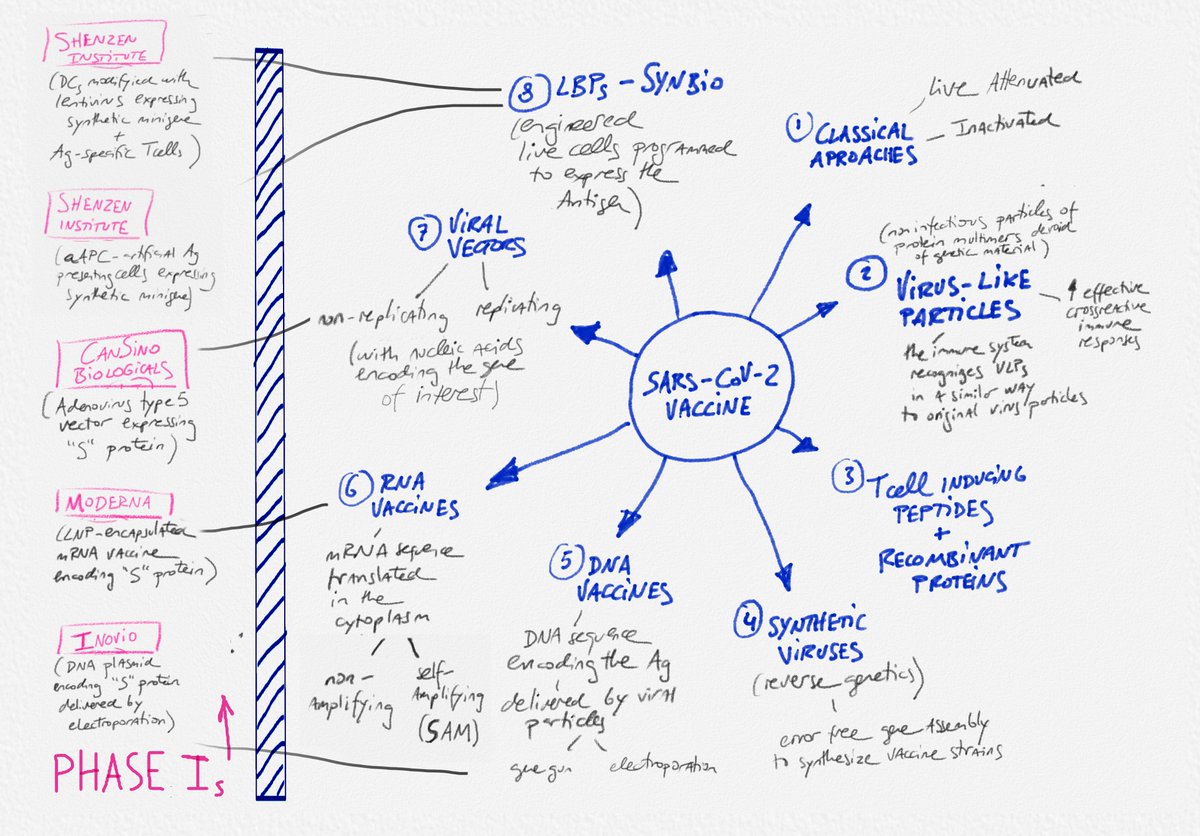 SHENZEN
INSTITUTE
(DCs modified with
lentivirus expressing
synthetic minigene
+
Ag-specific Tcells)
SHENZEN
INSTITUTE
(aAPC-artificial Ag
presenting cells expressing
synthetic minigene)
CANSINO
BIOLOGICALS
(Adenovirus type 5
vector expressing
"S" protein)
MODERNA
(LNP-encapsulated
mRNA vaccine
encoding "S" protein)
INOVIO
(DNA plasmid
encoding "S" protein
delivered by
electroporation)
PHASE Is
SARS-CoV-2
VACCINE
1 CLASSICAL
APROACHES
Live Attenuated
Inactivated
(non infectious particles of
protein multimers devoid
of genetic material)
2 VIRUS-LIKE
PARTICLES
↑ effective
crossreactive
immune
responses
the immune system
recognizes VLPs
in a similar way
to original virus particles
3 Tcell INDUCING
PEPTIDES
+
RECOMBINANT
PROTEINS
4 SYNTHETIC
VIRUSES
(reverse genetics)
error free gene Assembly
to synthesize vaccine strains
5 DNA
VACCINES
DNA sequence
encoding the Ag
delivered by viral
particles
gene gun electroporation
6 RNA
VACCINES
mRNA sequence
translated
in the
cytoplasm
non-
Amplifying
self-
Amplifying
(SAM)
7 VIRAL
VECTORS
non-replicating replicating
(with nucleic acids
encoding the gene
of interest)
8 LBPs-SYNBIO
(engineered
live cells programmed
to express the
Antigen)